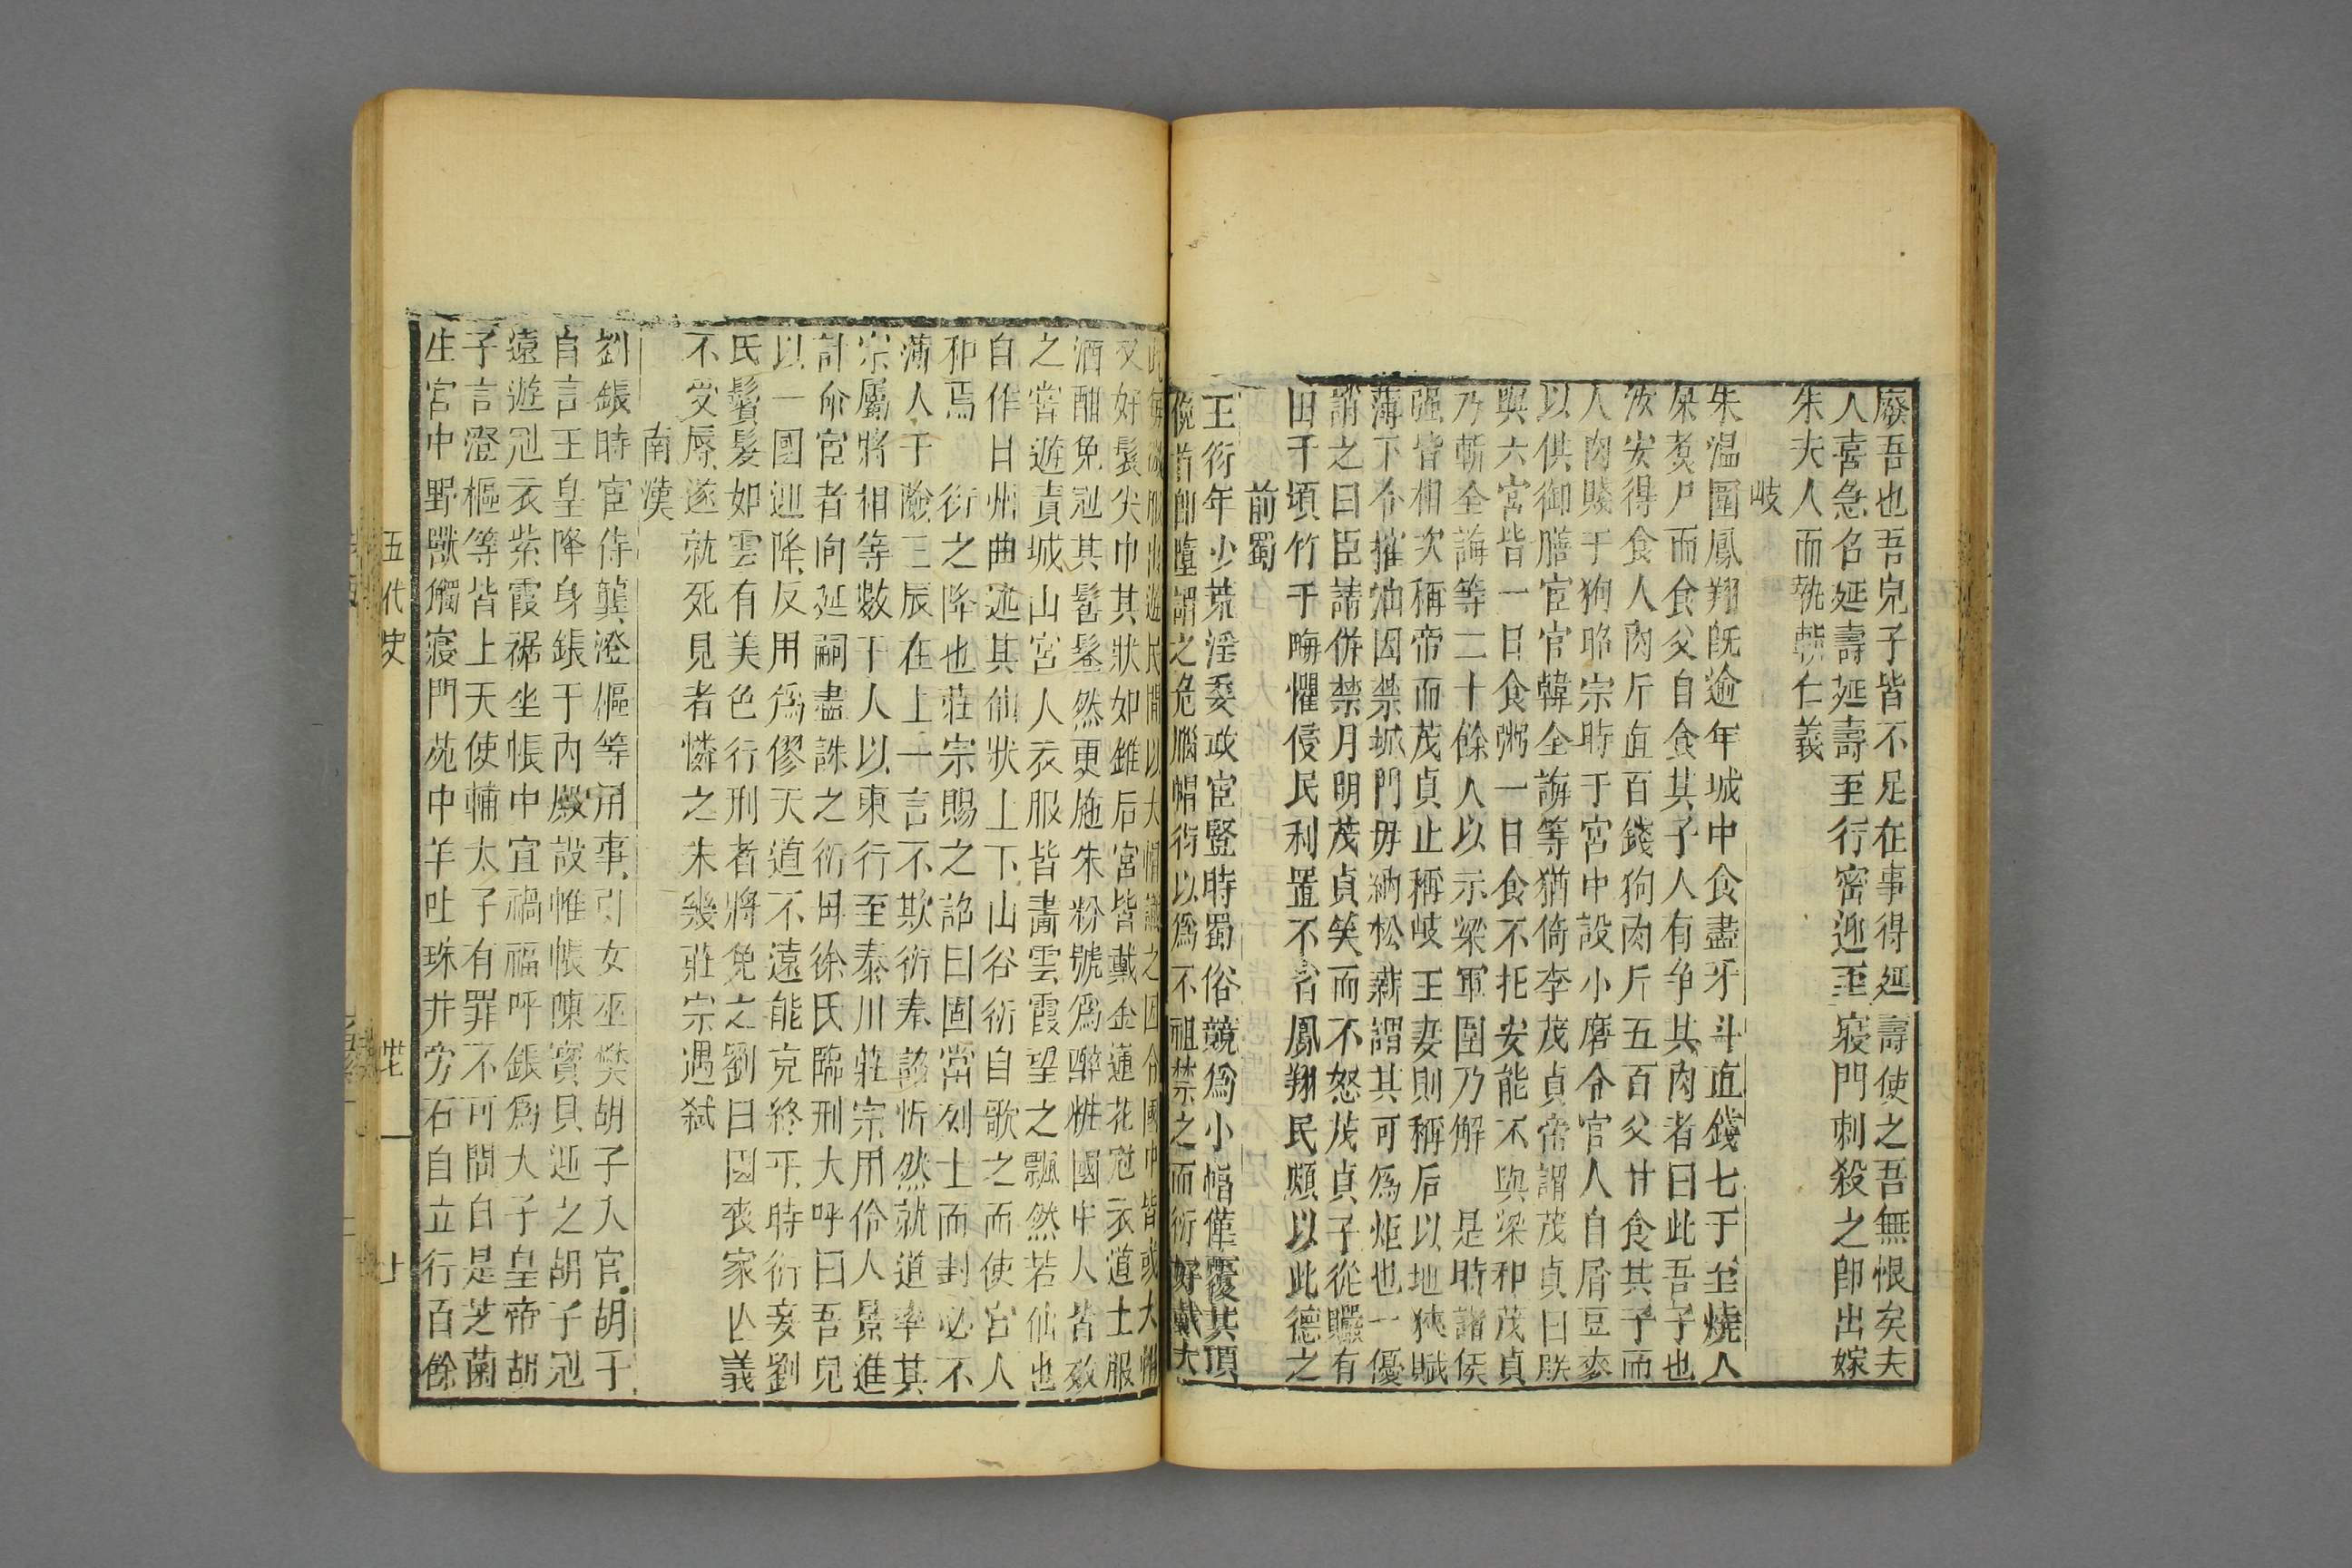 廢吾也吾兒子皆不足在事得延壽使之吾無恨矣夫
人喜急名延壽延壽至行密迎至寢門刺殺之卽出嫁
朱夫人而執賴仁義
岐
朱温圍鳳翔旣逾年城中食盡米斗直錢七千至燒人
屎煑尸而食父自食其子人有爭其肉者曰此吾子也
汝安得食人肉斤直百錢狗肉斤五百父甘食其子而
人肉賤于狗昭宗時于宮中設小磨令宮人自屑豆麥
以供御膳宦官韓全誨等猶倚李茂貞帝謂茂貞曰朕
與六宮皆一日食粥一日食不托安能不與梁和茂貞
乃斬全誨等二十餘人以示梁軍圍乃解　是時諸侯
强皆相次稱帝而茂貞止稱岐王妻則稱后以地狹賦
薄下令搉油因禁城門毋納松薪謂其可爲炬也一優
誚之曰臣請併禁月明茂貞笑而不怒茂貞子從曮有
田千頃竹千畮懼侵民利置不省鳳翔民頗以此德之
前蜀
王衍年少荒淫委政宦豎時蜀俗競爲小帽僅覆其頂
俛首卽墮謂之危腦帽衍以爲不祖禁之而衍好戴大
帽每微服出遊民間以大帽識之因令國中皆戴大帽
又好裹尖巾其狀如錐后宮皆戴金蓮花冠衣道士服
酒酣免冠其髻鬖然更施朱粉號爲醉粧國中人皆效
之嘗遊青城山宮人衣服皆畵雲霞望之飄然若仙也
自作甘州曲述其仙狀上下山谷衍自歌之而使宮人
和焉　衍之降也莊宗賜之詔曰固當列土而封必不
薄人于險三辰在上一言不欺衍奉詔忻然就道率其
宗屬將相等數千人以東行至秦川莊宗用伶人景進
計命宦者向延嗣盡誅之衍母徐氏臨刑大呼曰吾兒
以一國迎降反用爲僇天道不遠能克終乎時衍妾劉
氏鬢髮如雲有美色行刑者將免之劉曰國喪家亾義
不受辱遂就死見者憐之未幾莊宗遇弑
南漢
劉鋹時宦侍龔澄樞等用事引女巫樊胡子入宮胡子
自言玉皇降身鋹于內殿設帷帳陳寶貝迎之胡子冠
遠遊冠衣紫霞裾坐帳中宣禍福呼鋹爲大子皇帝胡
子言澄樞等皆上天使輔太子有罪不可問自是芝菌
生宮中野獸觸寢門苑中羊吐珠井旁石自立行百餘
五代史